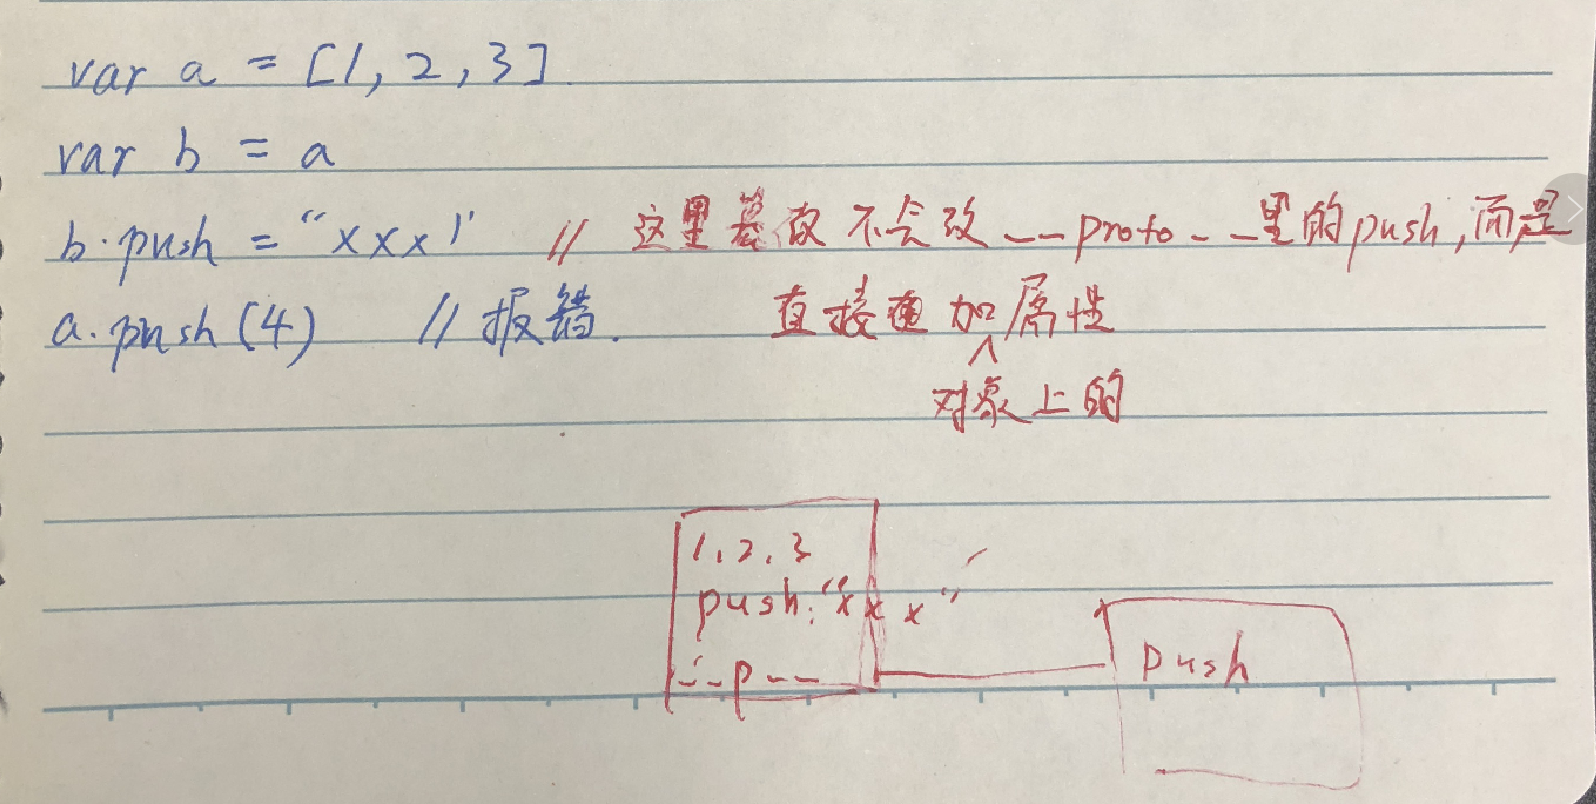 var a = [1, 2, 3]
var b = a
b.push = "xxx" // 这里 做 不会改 __proto__里的push,而是
a.push(4) // 报错. 直接 加对象上的属性
1, 2, 3
push: "xxx"
__p__
push